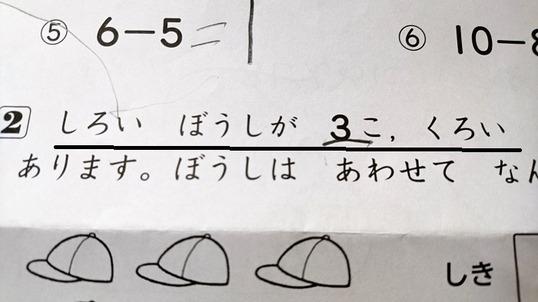 ⑤ 6－5＝ ⑥ 10－8
2 しろい ぼうしが 3こ, くろい
あります。ぼうしは あわせて な
しき